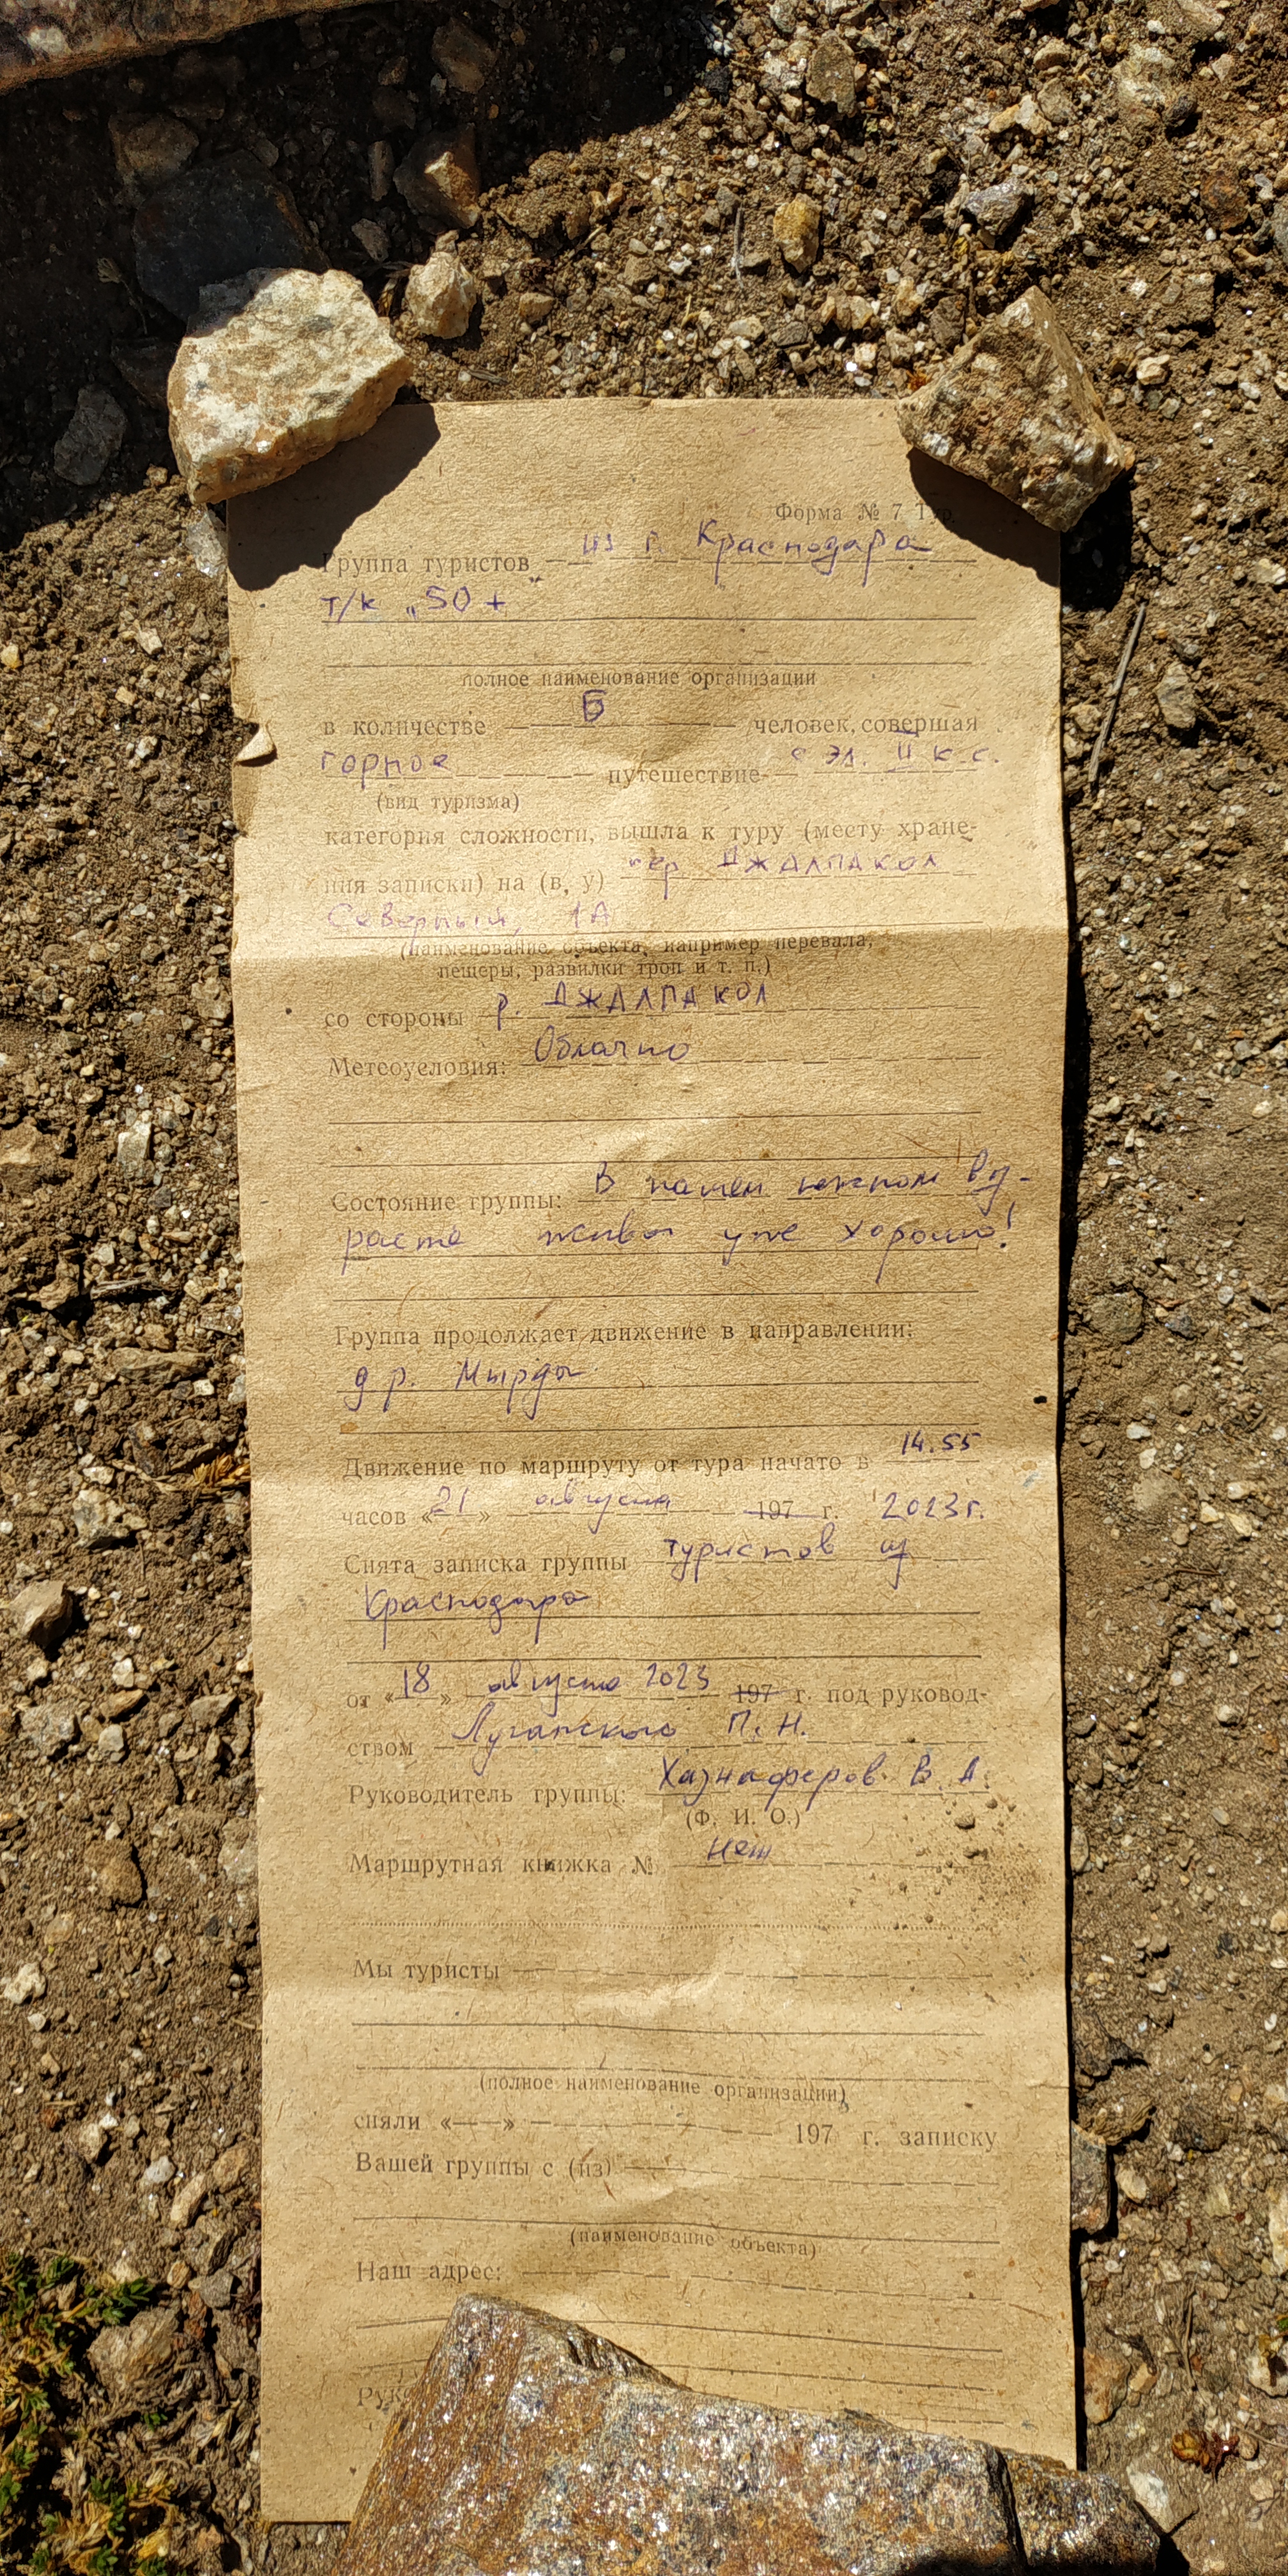 Форма № 7 Тур
Группа туристов из г. Краснодара
т/к "50+"
полное наименование организации
в количестве 6 человек, совершая
горное путешествие с эл. II к.с.
(вид туризма)
категория сложности, вышла к туру (месту хране-
ния записки) на (в, у) пер. ДЖАЛПАКОЛ
Северный, 1А
(наименование объекта, например перевала,
пещеры, развилки троп и т. п.)
со стороны р. ДЖАЛПАКОЛ
Метеоусловия: Облачно
Состояние группы: В нашем воз-
расте живы уже хорошо!
Группа продолжает движение в направлении:
д.р. Мырды
Движение по маршруту от тура начато в 14.55
часов «21» августа 197 г. 2023г.
Снята записка группы туристов из
Краснодара
от «18» августа 2023 197 г. под руковод-
ством Луганского П. Н.
Руководитель группы: Хазнаферов В. А.
(Ф. И. О.)
Маршрутная книжка № нет
Мы туристы
(полное наименование организации)
сняли « » 197 г. записку
Вашей группы с (из)
(наименование объекта)
Наш адрес: